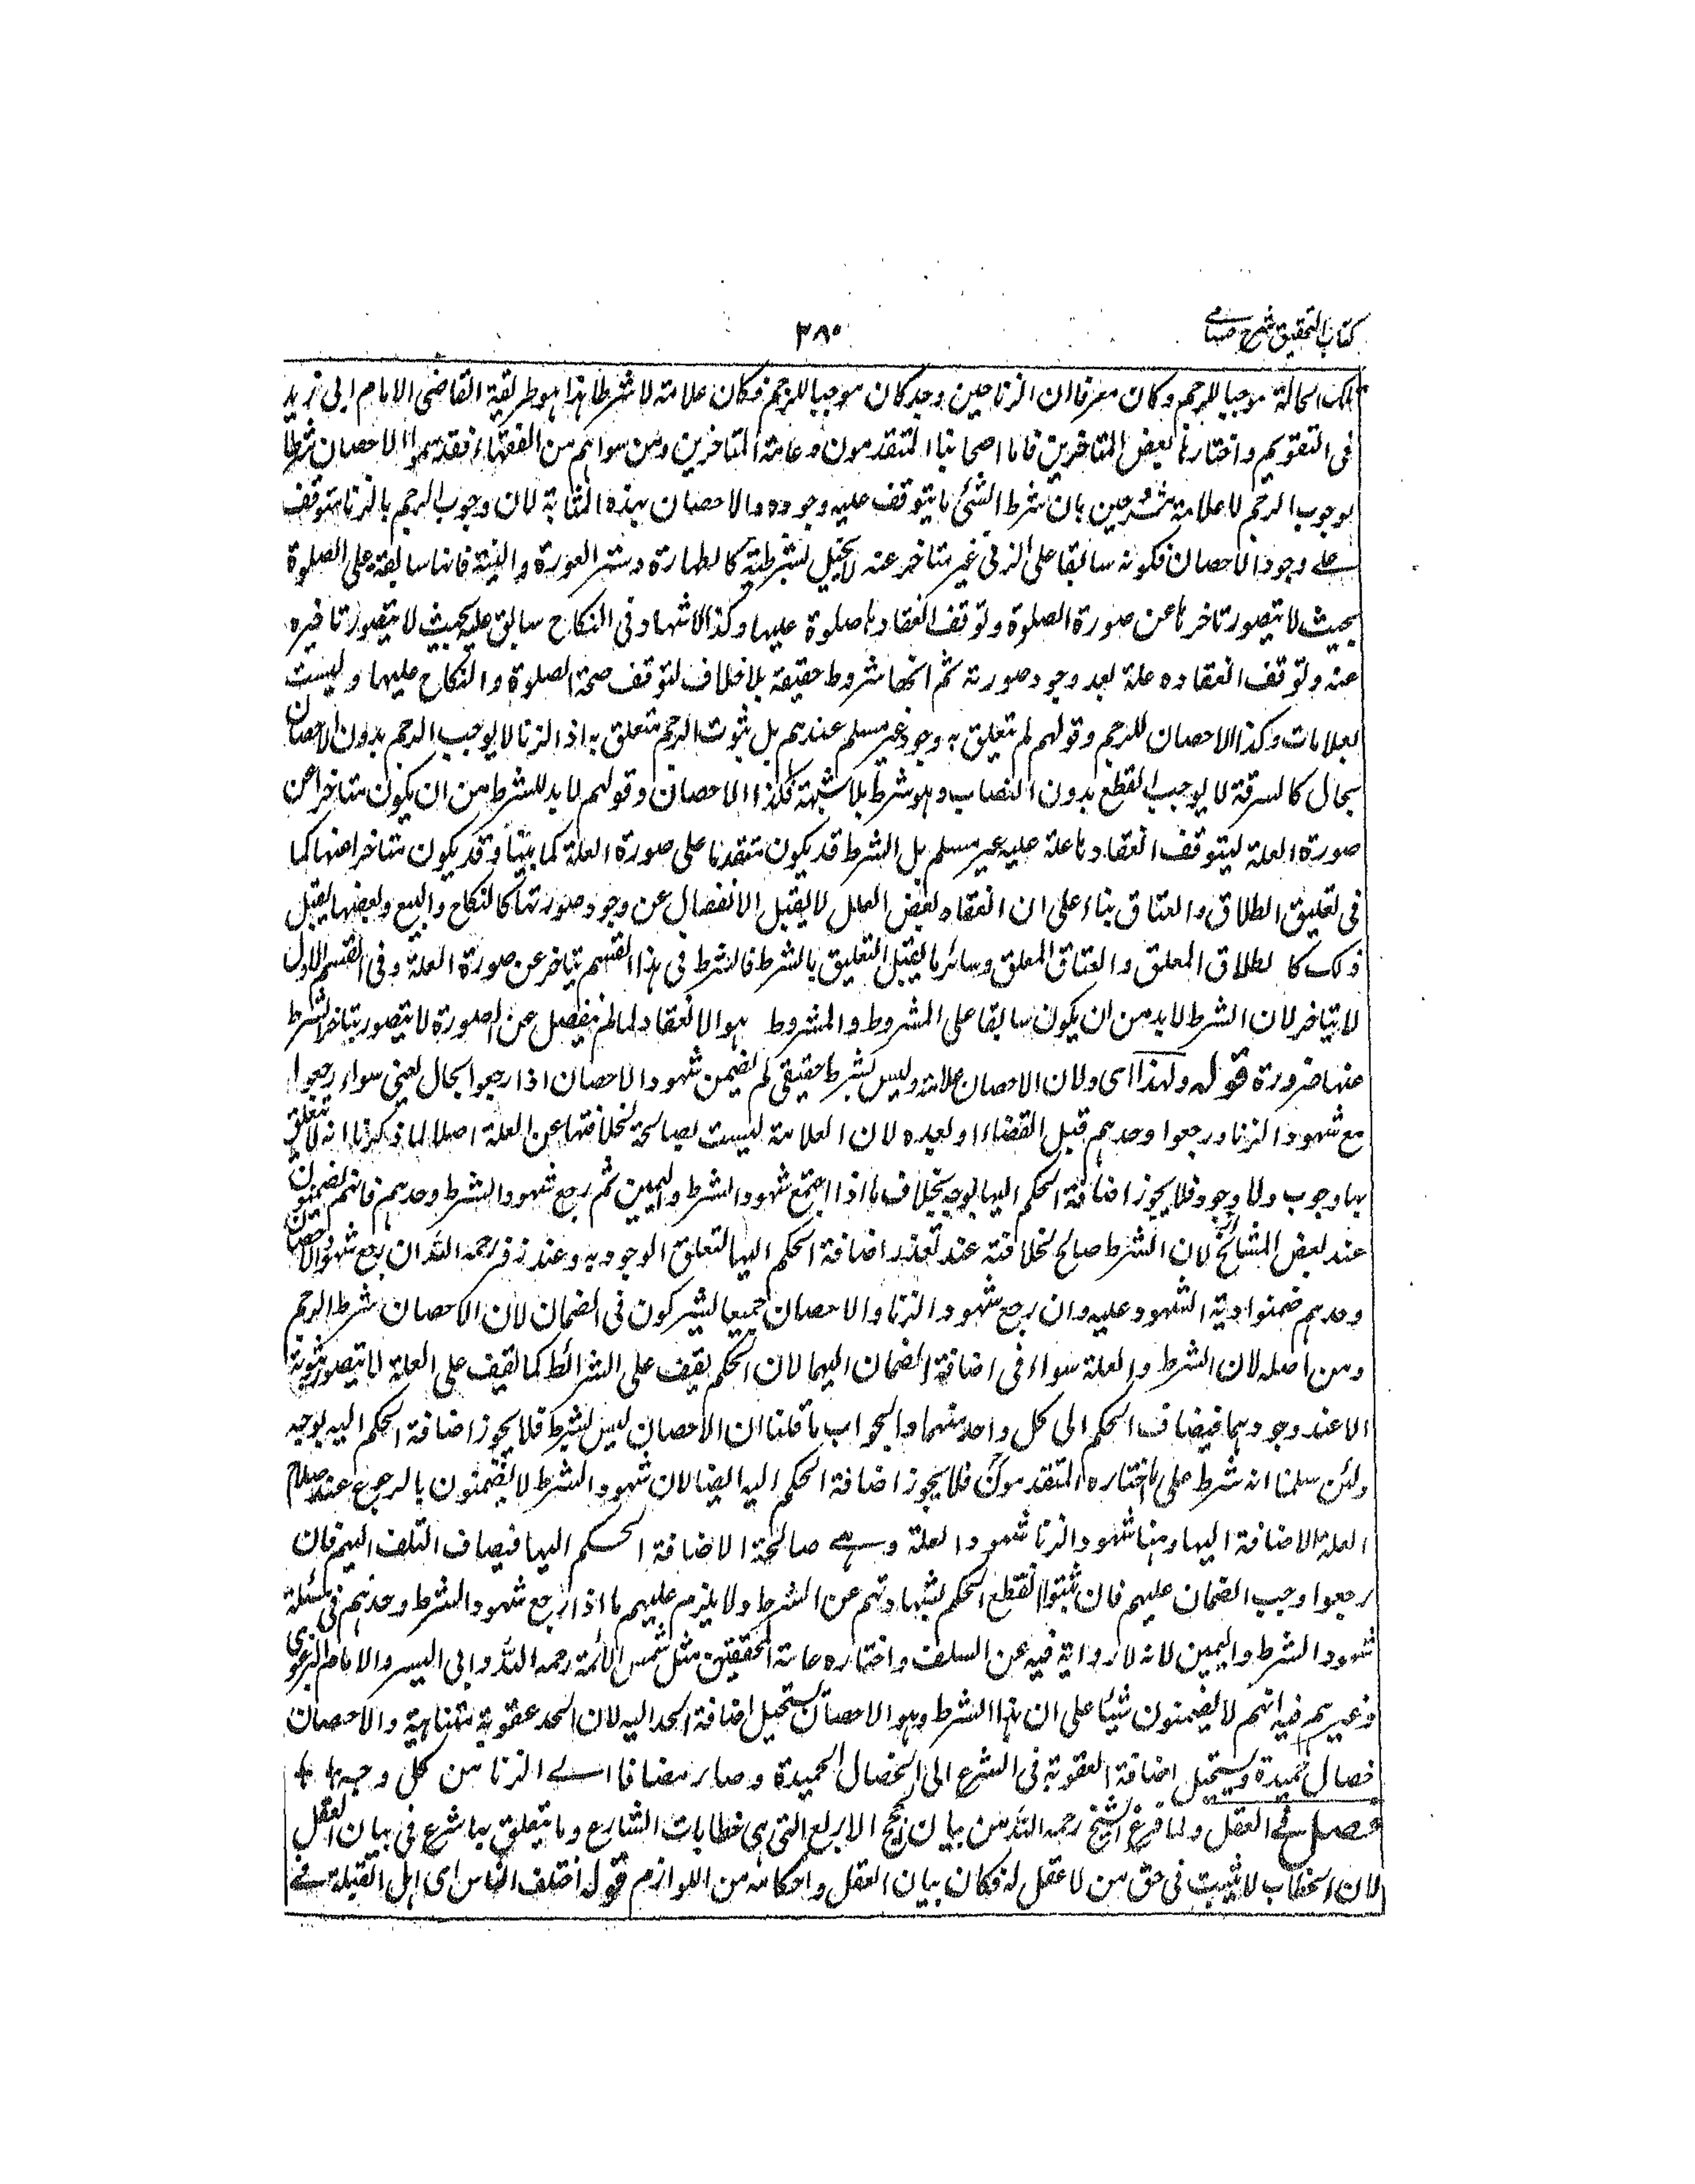 كتاب التحقيق شرح حسامى
٢٨٠
تلك الحالة موجبا للرجم وكان معرفا ان الزنا حين وجد كان موجبا للرجم فكان علامة لا شرطا هذا هو طريقة القاضى الامام ابى زيد
فى التقويم واختارها بعض المتاخرين فاما اصحابنا المتقدمون وعامة المتاخرين ومن سواهم من الفقهاء فقد سموا الاحصان شرطا
لوجوب الرجم لا علامة محتجين بان شرط الشئ ما يتوقف عليه وجوده والاحصان بهذه المثابة لان وجوب الرجم بالزنا متوقف
على وجود الاحصان فكونه سابقا على الزنى غير متاخر عنه لا يخل بشرطيته كالطهارة وستر العورة والنية فانها سابقة على الصلوة
بحيث لا يتصور تاخرها عن صورة الصلوة وتوقف انعقادها صلوة عليها وكذا الاشهاد فى النكاح سابق عليه بحيث لا يتصور تاخيره
عنه وتوقف انعقاده علة بعد وجود صورته ثم انها شروط حقيقة بلا خلاف لتوقف صحة الصلوة والنكاح عليها وليست
بعلامات وكذا الاحصان للرجم وقولهم لم يتعلق به وجود غير مسلم عندهم بل ثبوت الرجم متعلق به اذ الزنا لا يوجب الرجم بدون الاحصان
بحال كالسرقة لا يوجب القطع بدون النصاب وهو شرط بلا شبهة فكذا الاحصان وقولهم لا بد للشرط من ان يكون متاخرا عن
صورة العلة ليتوقف انعقادها علة عليه غير مسلم بل الشرط قد يكون متقدما على صورة العلة كما بينا وقد يكون متاخرا عنها كما
فى تعليق الطلاق والعتاق بناء على ان انعقاد بعض العلل لا يقبل الانفصال عن وجود صورتها كالنكاح والبيع وبعضها يقبل
ذلك كا لطلاق المعلق والعتاق المعلق وسائر ما يقبل التعليق بالشرط فالشرط فى هذا القسم يتاخر عن صورة العلة وفى القسم الاول
لا يتاخر لان الشرط لا بد من ان يكون سابقا على المشروط والمشروط هو الانعقاد لما لم ينفصل عن الصورة لا يتصور تاخر الشرط
عنها ضرورة قوله ولهذا اى ولان الاحصان علامة وليس بشرط حقيقى لم يضمن شهود الاحصان اذا رجعوا بحال يعنى سواء رجعوا
مع شهود الزنا ورجعوا وحدهم قبل القضاء او بعده لان العلامة ليست بصالحة لخلافتها عن العلة اصلا لما ذكرنا انه لا يتعلق
بها وجوب ولا وجود فلا يجوز اضافة الحكم اليها بوجه بخلاف ما اذا اجتمع شهود الشرط واليمين ثم رجع شهود الشرط وحدهم فانهم يضمنون
عند بعض المشائخ لان الشرط صالح لخلافته عند تعذر اضافة الحكم اليها لتعلق الوجود به وعند زفر رحمه الله ان رجع شهود الاحصان
وحدهم ضمنوا دية المشهود عليه وان رجع شهود الزنا والاحصان جميعا يشتركون فى الضمان لان الاحصان شرط الرجم
ومن اصله لان الشرط والعلة سواء فى اضافة الضمان اليهما لان الحكم يقف على الشرائط كما يقف على العلة لا يتصور ثبوته
الا عند وجودهما فيضاف الحكم الى كل واحد منهما والجواب ما قلنا ان الاحصان ليس بشرط فلا يجوز اضافة الحكم اليه بوجه
ولئن سلمنا انه شرط على ما اختاره المتقدمون فلا يجوز اضافة الحكم اليه ايضا لان شهود الشرط لا يضمنون بالرجوع عند صلاح
العلة للاضافة اليها وههنا شهود الزنا شهود العلة وهى صالحة لاضافة الحكم اليها فيضاف التلف اليهم فان
رجعوا وجب الضمان عليهم فان ثبتوا انقطع الحكم بشهادتهم عن الشرط ولا يلزم عليهم ما اذا رجع شهود الشرط وحدهم فى مسئلة
شهود الشرط واليمين لانه لا رواية فيه عن السلف واختاره عامة المحققين مثل شمس الائمة رحمه الله وابى اليسر والامام البرغرى
وغيرهم فيه انهم لا يضمنون شيئا على ان هذا الشرط وهو الاحصان يستحيل اضافة الحد اليه لان الحد عقوبة متناهية والاحصان
خصال حميدة ويستحيل اضافة العقوبة فى الشرع الى الخصال الحميدة وصار مضافا الى الزنا من كل وجه
فصل فى العقل ولما فرغ الشيخ رحمه الله من بيان الحجج الاربع التى هى خطابات الشارع وما يتعلق بها شرع فى بيان العقل
لان الخطاب لا يثبت فى حق من لا عقل له فكان بيان العقل واحكامه من اللوازم قوله اختلف الناس اى اهل القبلة فى